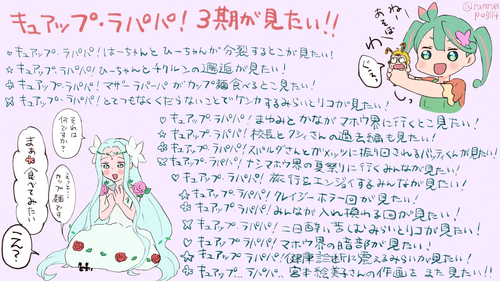 キュアップ・ラパパ! 3期が見たい!!
@ranran
キュアップ・ラパパ! はーちゃんとひーちゃんが分裂するとこが見たい!
キュアップ・ラパパ! ひーちゃんとチクルンの邂逅が見たい!
キュアップ・ラパパ! マザー・ラパーパがカップ麺食べるとこ見たい!
キュアップ・ラパパ! とてつもなくくだらないことでケンカするみらいとリコが見たい!
キュアップ・ラパパ! まゆみとかながマホウ界に行くとこ見たい!
キュアップ・ラパパ! 校長とクシィさんの過去編も見たい!
キュアップ・ラパパ! スパルダさんとガメッツに振り回されるバッティくんが見たい!
キュアップ・ラパパ! ナシマホウ界の夏祭りに行くみんなが見たい!
キュアップ・ラパパ! 旅行をエンジョイするみんなが見たい!
キュアップ・ラパパ! クレイジーホラー回が見たい!
キュアップ・ラパパ! みんなが入れ換わる回が見たい!
キュアップ・ラパパ! 二日酔いに苦しむみらいとリコが見たい!
キュアップ・ラパパ! マホウ界の暗部が見たい!
キュアップ・ラパパ! 健康診断に震えるみらいが見たい!
キュアップ…ラパパ… 宮本絵美子さんの作画をまた見たい!!
ねー
あそぼ
わっ
それは
何ですか?
えっと…
カップ
麺です
まぁ
食べてみたい
えっ?